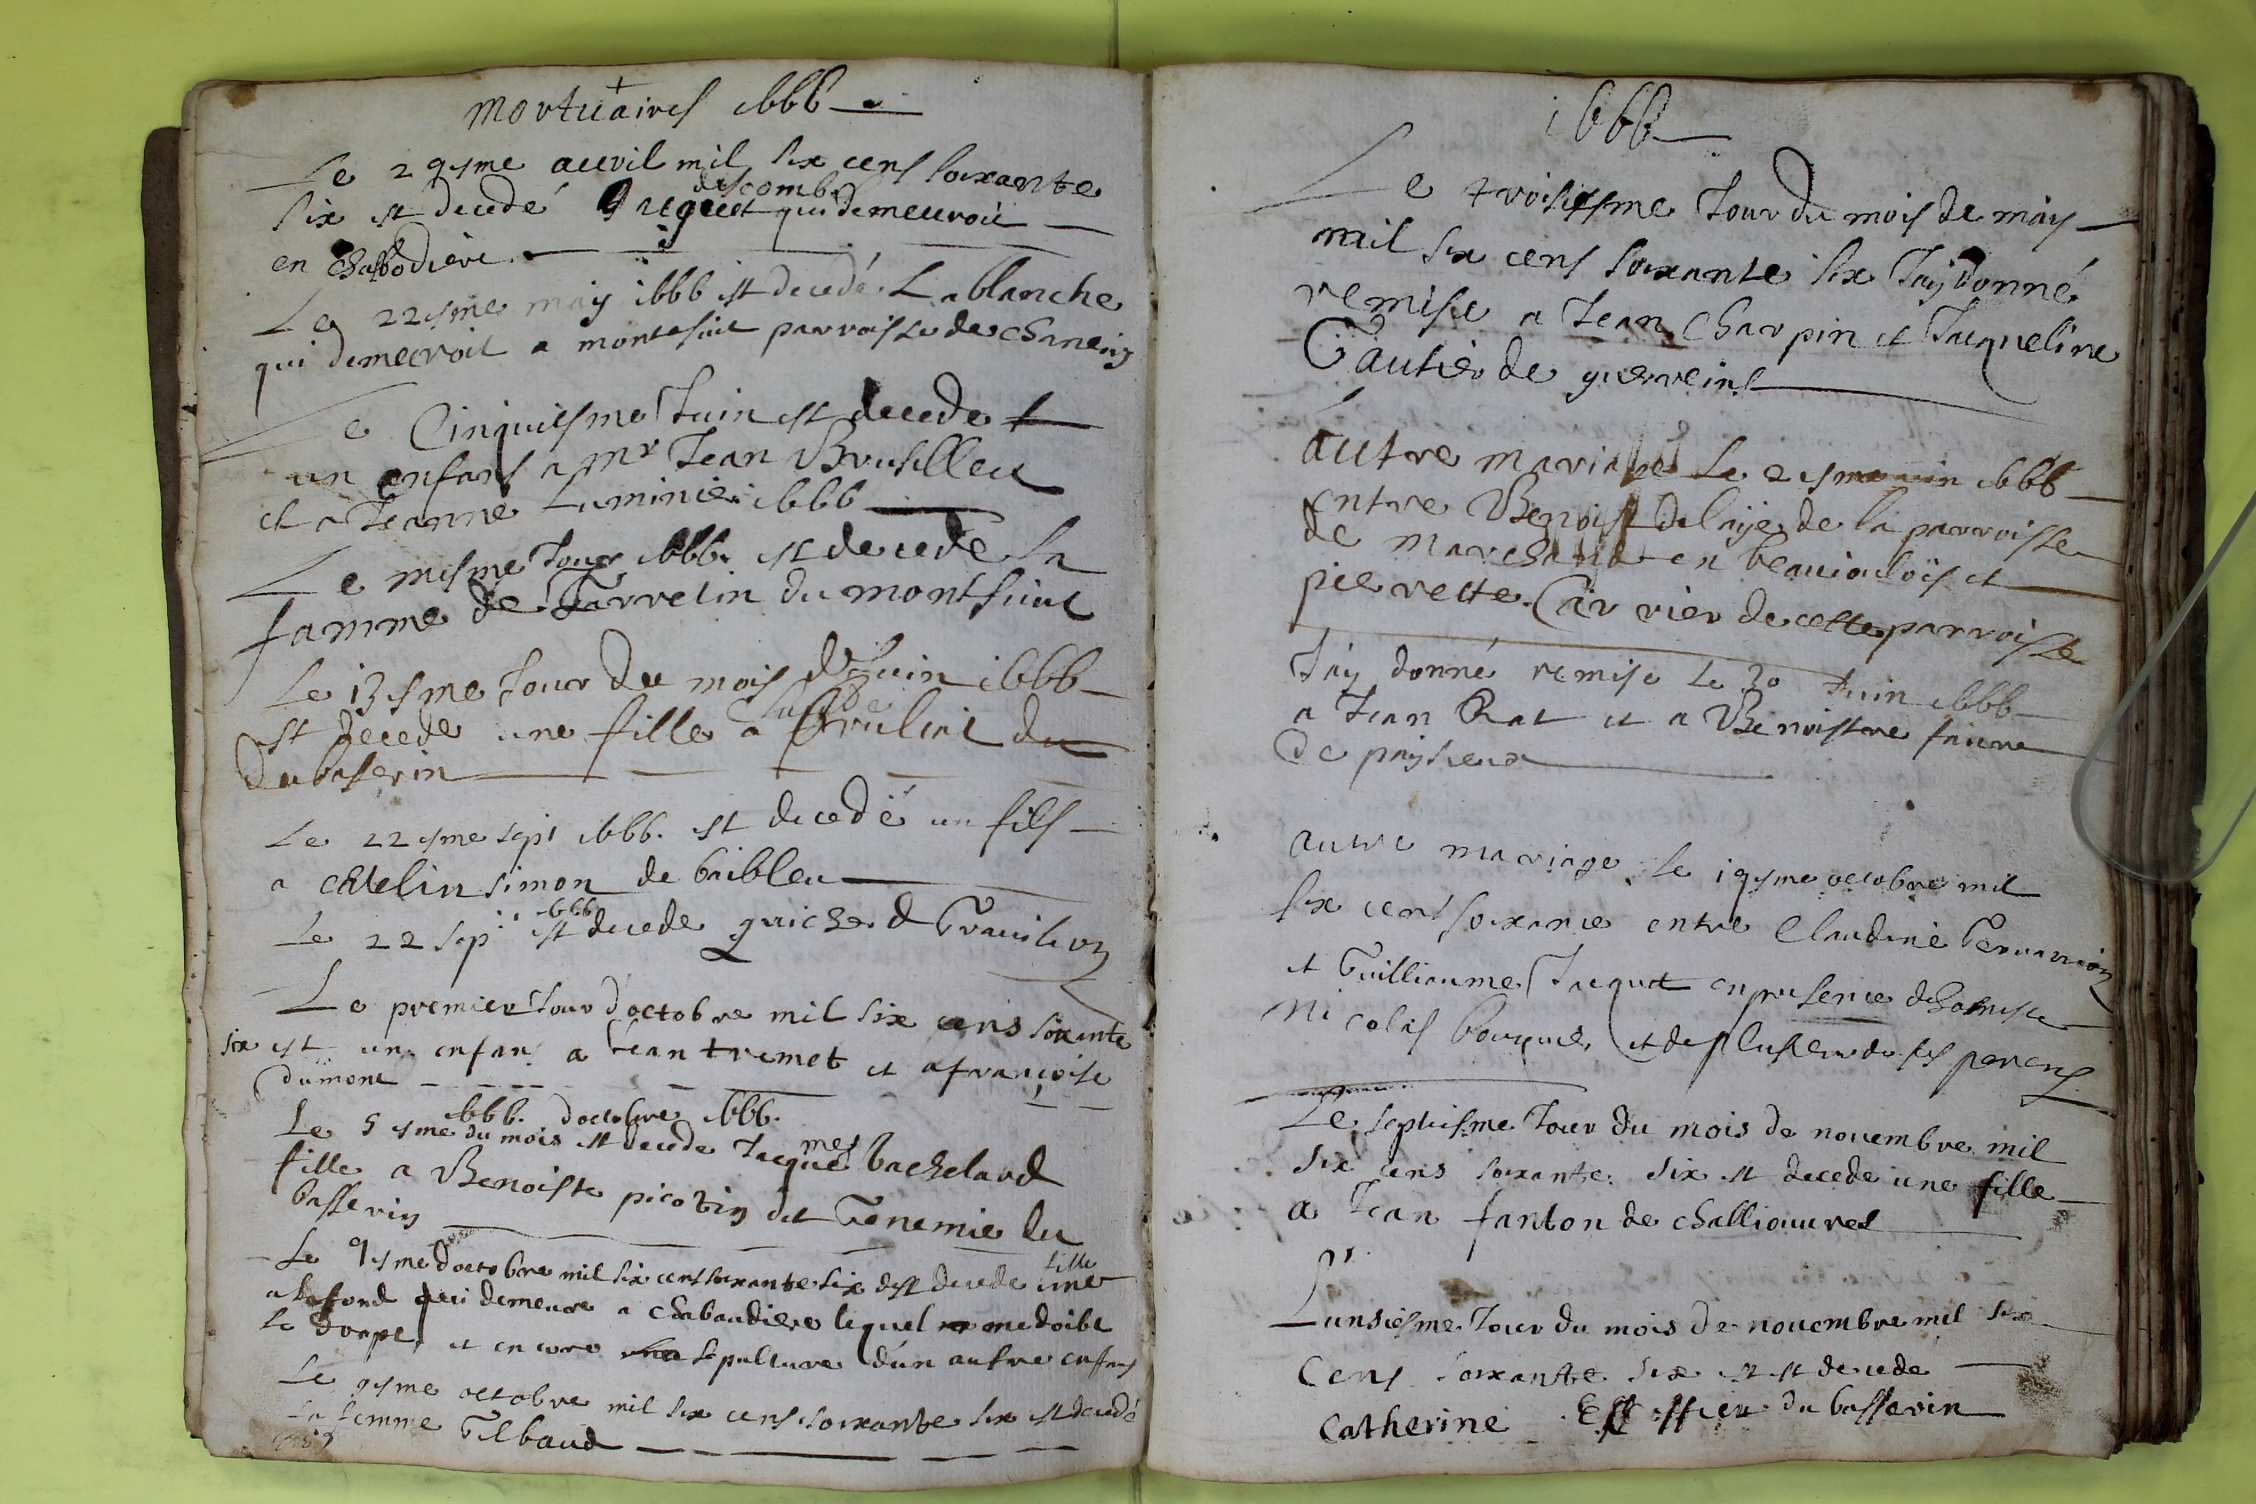 mortuaires 1666
Le 29esme auvril mil six cens soixante
descombe
six est decedé qui demeuroit
en
Le 22esme may 1666 est decedé La blanche
qui demeuroit a montesuit parroisse de chaneins
Le Cinquiesme Juin est decede
un enfans a mr Jean Brusilleu
et a Jeanne Luminier 1666
Le mesme Jour 1666 est decede la
famme de Farrelin du montsuit
Le 13esme Jour du mois de Juin 1666
est decede une fille a du
Du basserin
Le 22esme sept 1666. est decedé un fils
a simon de baibleu
1666
Le 22 sep est decede
Le premier Jour d'octobre mil six cens soixante
six est un enfan a Jean tremet et a françoise
dumont
1666. d'octobre 1666.
Le 5esme du mois est decede Jacquemet bachelard
fille a Benoiste picotin det du
basserin
Le 9esme d'octobre mil six cent soixante six est decede une fille
a Lafond qui demeure a chabaudiere lequel me doibt
le drapt, et encore sepulture d'un autre enfans
Le 9esme octobre mil six cens soixante six est decedé
la femme Gilbaud
1666
Le troisiesme Jour du mois de may
mil six cens soixante six J'ay donné
remise a Jean Charpin et Jacqueline
Gautier de guerreins
autre mariage Le 2esme Juin 1666
entre Benoist delaye de la parroisse
de en beauiolois et
pierrette Carrier de cette parroisse
J'ay donné remise le 30 Juin 1666
a Jean Rat et a Benoistre faure
De paysieux
autre mariage le 19esme octobre mil
six cent soixante entre Claudine
et Guilliaume Jaquet en presence d'honneste
Nicolas et de plusieur de ses parens
Le septiesme Jour du mois de novembre mil
six cens soixante six est decede une fille
a Jean fanton de challiouvres
L'unsiesme Jour du mois de novembre mil six
Cens soixante six est est decede
Catherine du basserin